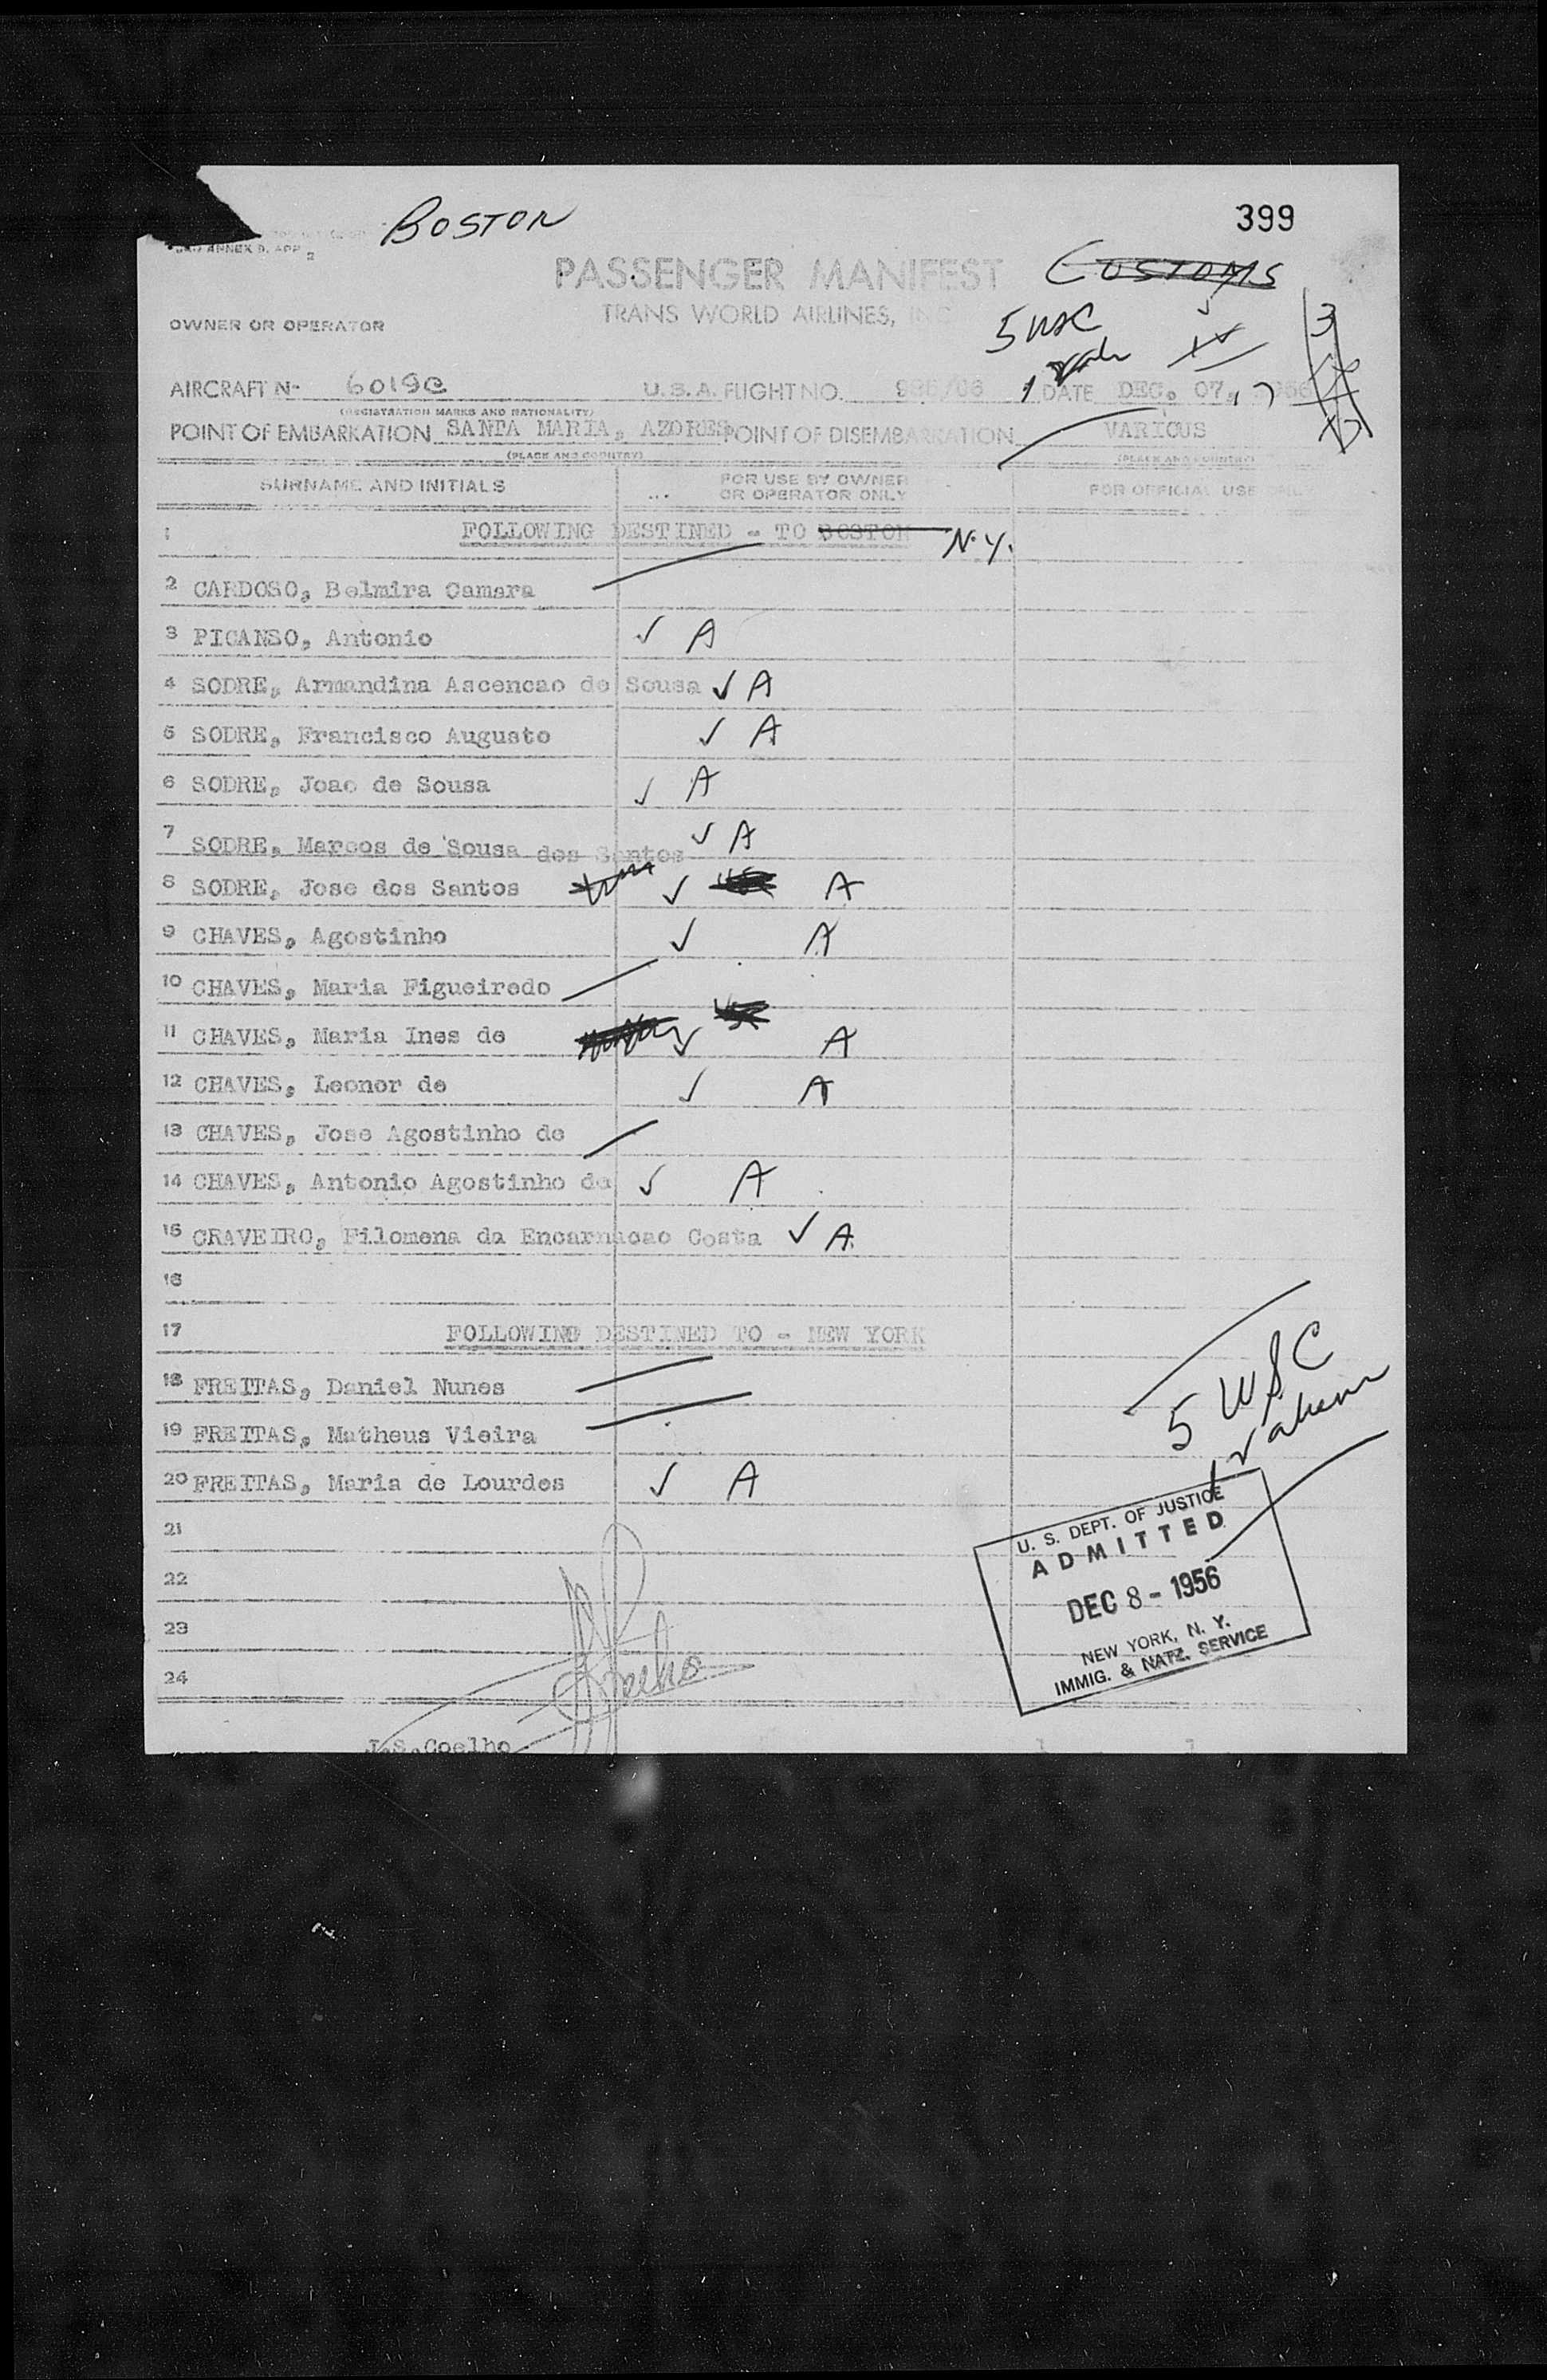 BOSTON
399
ANNEX 9, APP 2
PASSENGER MANIFEST
CUSTOMS
TRANS WORLD AIRLINES, INC
5 USC
3
OWNER OR OPERATOR
AIRCRAFT N- 6019C U.S.A. FLIGHT NO. DATE DEC. 07,
(REGISTRATION MARKS AND NATIONALITY)
POINT OF EMBARKATION SANTA MARIA, AZORES POINT OF DISEMBARKATION VARIOUS
(PLACE AND COUNTRY) (PLACE AND COUNTRY)
SURNAME AND INITIALS FOR USE BY OWNER OR OPERATOR ONLY FOR OFFICIAL USE ONLY
1 FOLLOWING DESTINED - TO BOSTON N.Y.
2 CARDOSO, Belmira Camara
3 PICANSO, Antonio ✓ A
4 SODRE, Armandina Ascencao de Sousa ✓ A
5 SODRE, Francisco Augusto ✓ A
6 SODRE, Joao de Sousa ✓ A
7 SODRE, Marcos de Sousa dos Santos ✓ A
8 SODRE, Jose dos Santos ✓ A
9 CHAVES, Agostinho ✓ A
10 CHAVES, Maria Figueiredo
11 CHAVES, Maria Ines de ✓ A
12 CHAVES, Leonor de ✓ A
13 CHAVES, Jose Agostinho de
14 CHAVES, Antonio Agostinho de ✓ A
15 CRAVEIRO, Filomena da Encarnacao Costa ✓ A
16
17 FOLLOWING DESTINED TO - NEW YORK
18 FREITAS, Daniel Nunes
19 FREITAS, Matheus Vieira
20 FREITAS, Maria de Lourdes ✓ A
5 USC
21
22
23
24
U. S. DEPT. OF JUSTICE
ADMITTED
DEC 8 - 1956
NEW YORK, N. Y.
IMMIG. & NATZ. SERVICE
J.S.Coelho